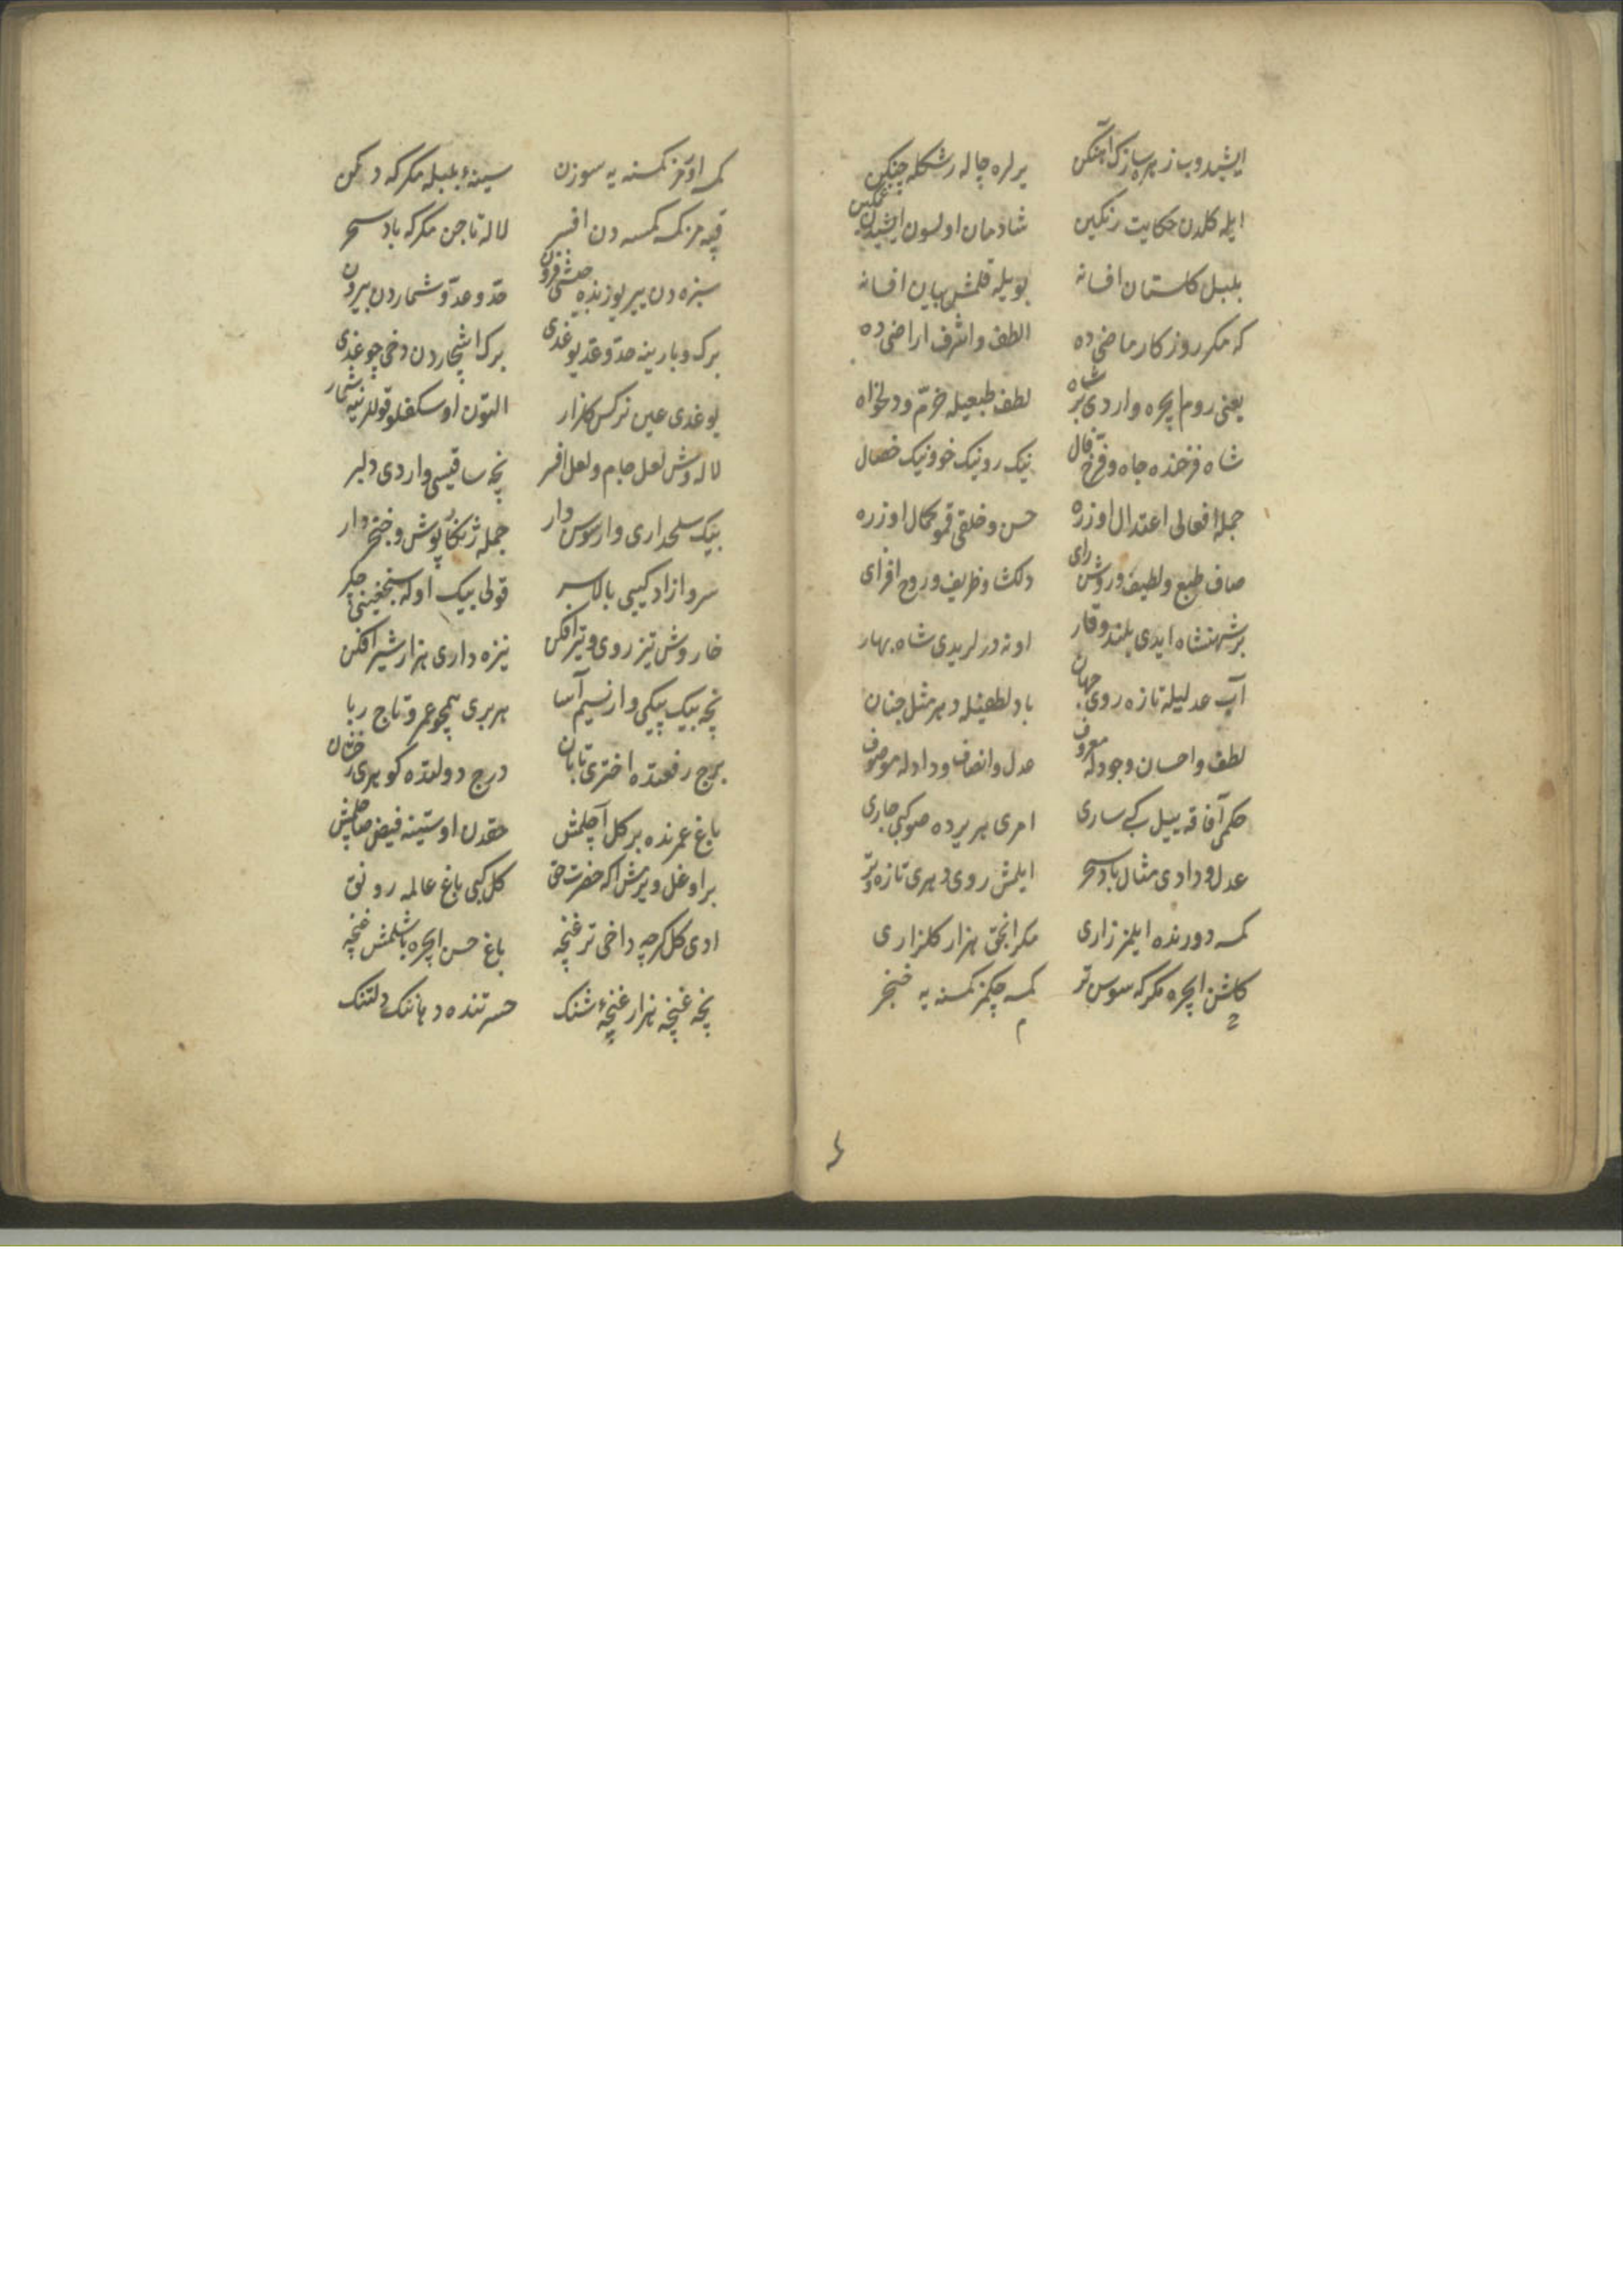 ایشیدوب زهره سازک آهنکن یرلره چاله رشکله چنکین
ایله کلدن حکایت رنکین شادمان اولسون ایشیدن غمکین
بلبل کلستان افسانه بویله قلمش بیان افسانه
که مکر روزکار ماضی ده الطف واشرف اراضی ده
یعنی روم ایچره واردی بر شاه لطف طبعیله خرّم ودلخواه
شاه فرخنده جاه وفرّخ فال نیک رو نیک خو ونیک خصال
جمله افعالی اعتدال اوزره حسن وخلقی قمو کمال اوزره
صاف طبع ولطیف وروشن رای دلکشا وظریف وروح افزای
بر شهنشاه ایدی بلند وقار اونه درلر یدی شاه بهار
آب عدلیله تازه روی جهان باد لطفیله دهر مثل جنان
لطف واحسان وجودله معروف عدل وانصاف ودادله موصوف
حکمی آفاقه ییل کبی ساری امری هر یرده صو کبی جاری
عدل ودادی مثال باد سحر ایلمش روی دهری تازه وتر
کمسه دورنده ایلمز زاری مکر انجق هزار کلزاری
کلشن ایچره مکر که سوسن تر کمسه چکمز کمسنه یه خنجر
کمسه اوقمز کمسنه یه سوزن سینهٔ بلبله مکر که دکن
قپه مز کمسه کمسه دن افسر لاله تاجن مکر که باد سحر
سبزه دن یر یوزنده جیشی فزون حدّ وعدّ وشماردن بیرون
برک وبارینه حدّ وعدّ یوغدی برک اشجاردن دخی چوغدی
یوغدی عین نرکس کلزار التون اوسکفلو قوللرینه شمار
لاله وش لعل جام ولعل افسر نچه ساقیسی واردی دلبر
بیک سلحداری وار سوسن وار جمله ژنکار پوش وخنجردار
سرو ازاد کیبی بالاسر قولی بیک اوکه سنجغینی چکر
خار وش تیز روی وتیر افکن نیزه داری هزار شیر افکن
نچه بیک پیکی وار نسیم آسا هر بری همچو عمرو تاج ربا
برج رفعتده اختری تابان درج دولتده کوهری رخشان
باغ عمرنده بر کل آچلمش حقدن اوستینه فیض صاچلمش
بر اوغل ویرمش اکه حضرت حق کل کبی باغ عالمه رونق
ادی کل کرچه داخی تر غنچه باغ حسن ایچره باشلمش غنچه
نچه غنچه هزار غنچهٔ شنک حسرتنده دهاننک دلتنک